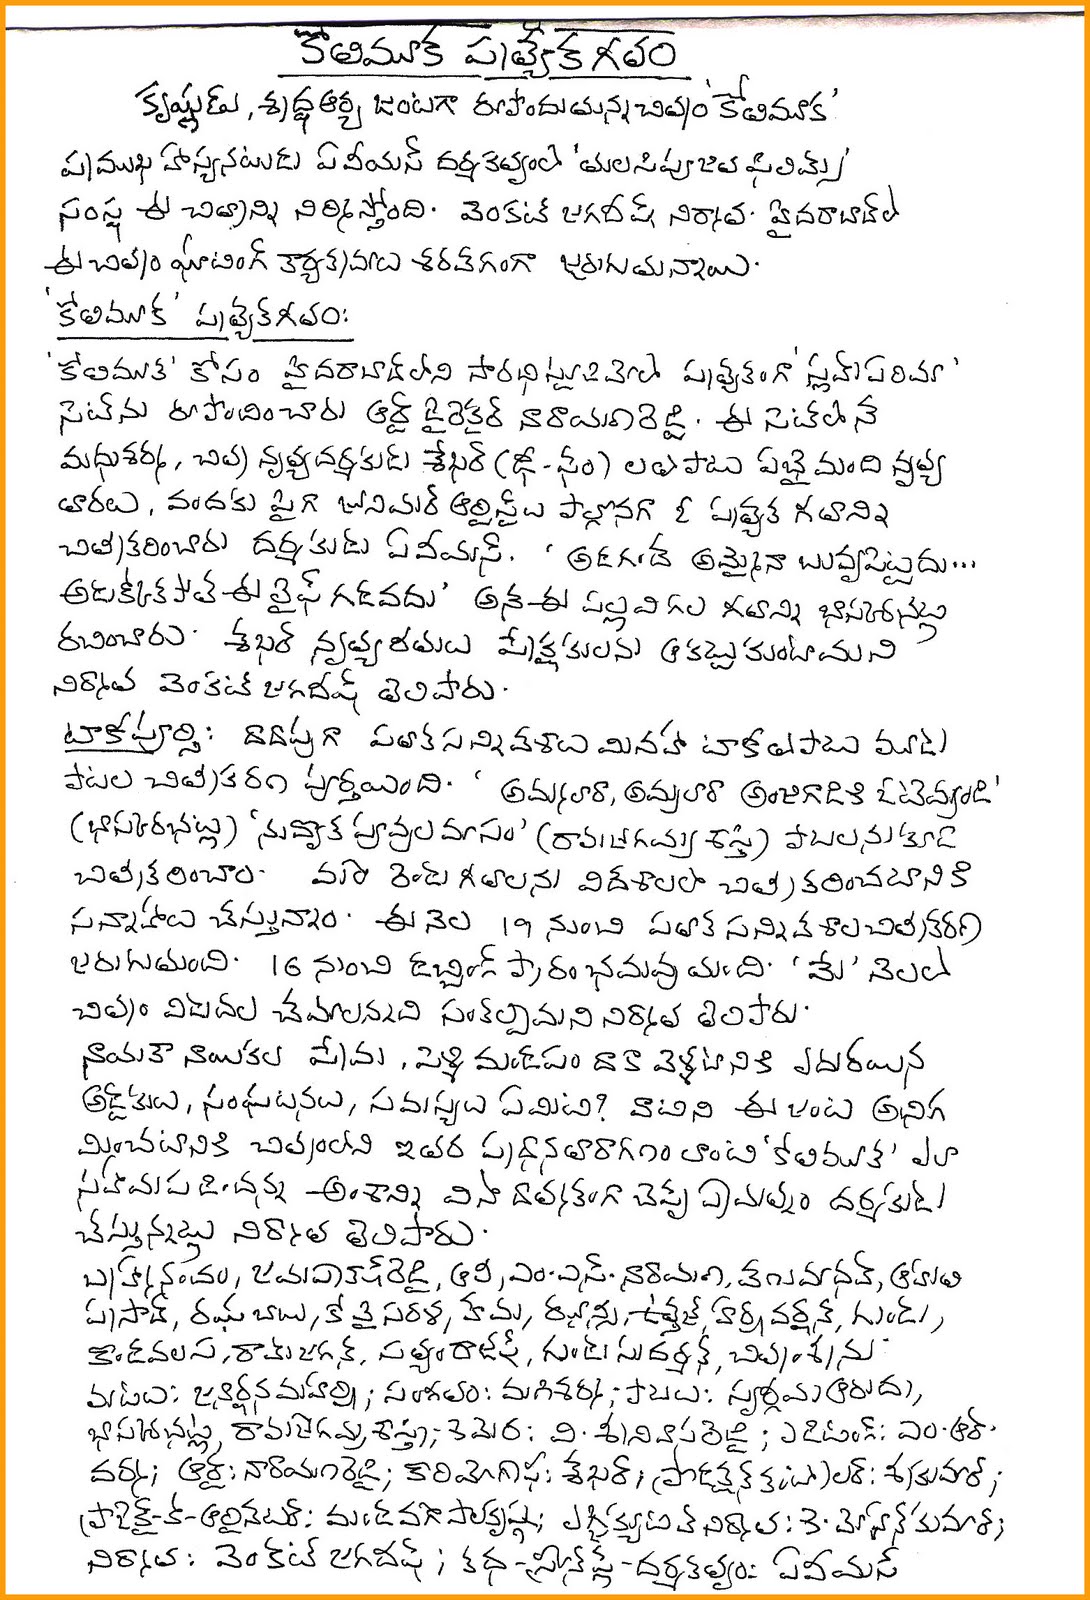 కోతిమూక ప్రత్యేక గీతం
కృష్ణుడు, శ్రద్ధ ఆర్య జంటగా రూపొందుతున్న చిత్రం 'కోతిమూక'
ప్రముఖ హాస్యనటుడు ఏవీయస్ దర్శకత్వంలో 'తులసిపూజిత ఫిలిమ్స్'
సంస్థ ఈ చిత్రాన్ని నిర్మిస్తోంది. వెంకట్ జగదీష్ నిర్మాత. హైదరాబాద్‌లో
ఈ చిత్రం షూటింగ్ కార్యక్రమాలు శరవేగంగా జరుగుతున్నాయి.
'కోతిమూక' ప్రత్యేక గీతం:
'కోతిమూక' కోసం హైదరాబాద్‌లోని సారథి స్టూడియోలో ప్రత్యేకంగా 'స్లమ్ ఏరియా'
సెట్‌ను రూపొందించారు ఆర్ట్ డైరెక్టర్ నారాయణరెడ్డి. ఈ సెట్‌లోనే
మధుశర్మ, చిత్ర నృత్యదర్శకుడు శేఖర్ (ఢీ-ఫేం) లతో పాటు ఏభైమంది నృత్య
తారలు, వందకు పైగా జూనియర్ ఆర్టిస్ట్‌లు పాల్గొనగా ఓ ప్రత్యేక గీతాన్ని
చిత్రీకరించారు దర్శకుడు ఏవీయస్. 'అడగందే అమ్మైనా బువ్వపెట్టదు...
అడుక్కోకపోతే ఈ లైఫ్ గడవదు' అనే ఈ పల్లవి గల గీతాన్ని భాస్కరభట్ల
రచించారు. శేఖర్ నృత్యరీతులు ప్రేక్షకులను ఆకట్టుకుంటాయని
నిర్మాత వెంకట్ జగదీష్ తెలిపారు.
టాకీపూర్తి: దాదాపుగా పతాక సన్నివేశాలు మినహా టాకీతోపాటు మూడు
పాటల చిత్రీకరణ పూర్తయింది. 'అమ్మలారా, అమ్మలారా అంజిగాడికి ఓటెయ్యండి'
(భాస్కరభట్ల) 'నువ్వొక పూవుల మాసం' (రామజోగయ్య శాస్త్రి) పాటలను కూడా
చిత్రీకరించాం. మరో రెండు గీతాలను విదేశాలలో చిత్రీకరించటానికి
సన్నాహాలు చేస్తున్నాం. ఈ నెల 19 నుంచి పతాక సన్నివేశాల చిత్రీకరణ
జరుగుతుంది. 16 నుంచి డబ్బింగ్ ప్రారంభమవుతుంది. 'మే' నెలలో
చిత్రం విడుదల చేయాలన్నది సంకల్పమని నిర్మాత తెలిపారు.
నాయకా నాయికల ప్రేమ, పెళ్ళి మండపం దాకా వెళ్ళటానికి ఎదురయిన
అడ్డంకులు, సంఘటనలు, సమస్యలు ఏమిటి? వాటిని ఈ జంట అధిగ
మించటానికి చిత్రంలోని ఇతర ప్రధాన తారాగణం లాంటి 'కోతిమూక' ఎలా
సహాయపడిందన్న అంశాన్ని వినోదాత్మకంగా చెప్పే ప్రయత్నం దర్శకుడు
చేస్తున్నట్లు నిర్మాత తెలిపారు.
బ్రహ్మానందం, జయప్రకాష్‌రెడ్డి, ఆలీ, ఎం.ఎస్. నారాయణ, వేణుమాధవ్, ఆహుతి
ప్రసాద్, రఘుబాబు, కోవైసరళ, హేమ, రజిత, ఉత్తేజ్, హర్షవర్ధన్, గుండు,
కొండవలస, రామ్ జగన్, సత్యం రాజేష్, గుండు సుదర్శన్, చిత్రం శ్రీను
మాటలు: జనార్ధనమహర్షి; సంగీతం: మణిశర్మ; పాటలు: స్వర్గీయ ఆరుద్ర,
భాస్కరభట్ల, రామజోగయ్య శాస్త్రి; కెమెరా: వి. శ్రీనివాసరెడ్డి; ఎడిటింగ్: ఎం.ఆర్.
వర్మ; ఆర్ట్: నారాయణరెడ్డి; కొరియోగ్రఫీ: శేఖర్; ప్రొడక్షన్ కంట్రోలర్: శివకుమార్;
ప్రాజెక్ట్-కో-ఆర్డినేటర్: మండవ గోపాలకృష్ణ; ఎగ్జిక్యూటివ్ నిర్మాత: కె. మోహన్ కుమార్;
నిర్మాత: వెంకట్ జగదీష్; కథ-స్క్రీన్‌ప్లే-దర్శకత్వం: ఏవీయస్